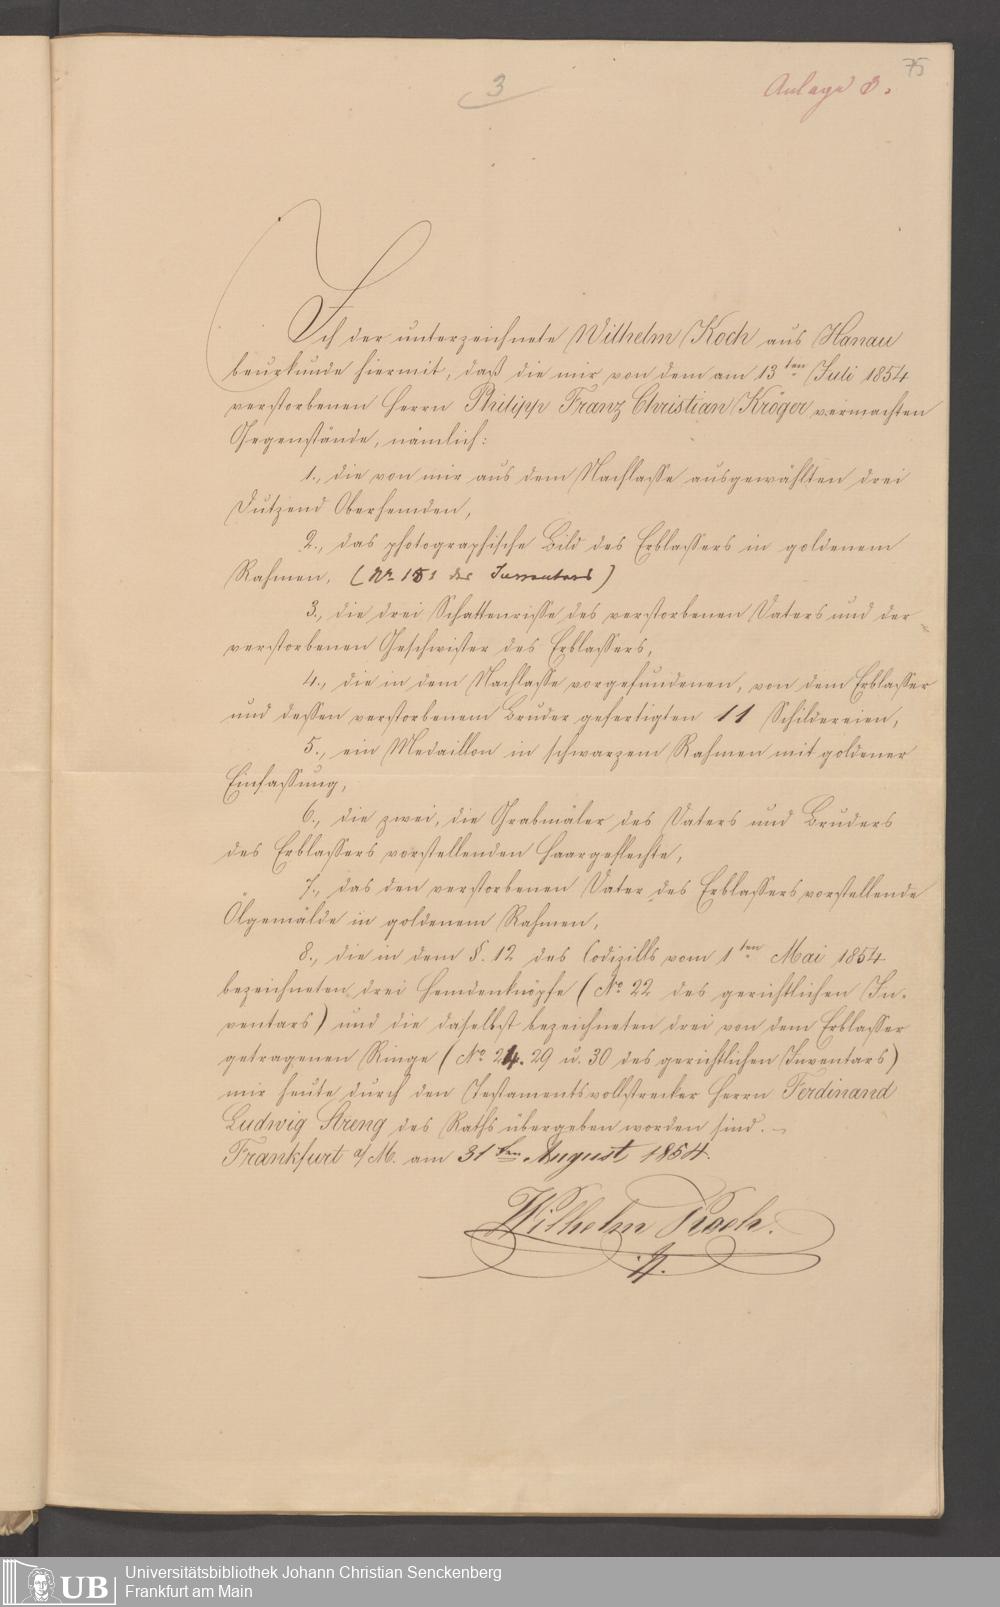 75
3
Anlage 3.
Ich der unterzeichnete Wilhelm Koch aus Hanau
beurkunde hiermit, daß die mir von dem am 13ten Juli 1854
verstorbenen Herrn Philipp Franz Christian Kröger vermachten
Gegenstände, nämlich:
1., die von mir aus dem Nachlasse ausgewählten drei
Dutzend Oberhemden,
2., das photographische Bild des Erblassers in goldenem
Rahmen, (Nr. des Inventars)
3., die drei Schattenrisse des verstorbenen Vaters und der
verstorbenen Geschwister des Erblassers,
4., die in dem Nachlasse vorgefundenen, von dem Erblasser
und dessen verstorbenem Bruder gefertigten 11 Schildereien,
5., ein Medaillon in schwarzem Rahmen mit goldener
Einfassung,
6., die zwei, die Grabmäler des Vaters und Bruders
des Erblassers vorstellenden Haargeflechte,
7., das den verstorbenen Vater des Erblassers vorstellende
Ölgemälde in goldenem Rahmen,
8., die in dem §. 12 des Codizills vom 1ten Mai 1854
bezeichneten drei Hemdenknöpfe (No 22 des gerichtlichen In-
ventars) und die daselbst bezeichneten drei von dem Erblasser
getragenen Ringe (No 24. 29 u. 30 des gerichtlichen Inventars)
mir heute durch den Testamentsvollstrecker Herrn Ferdinand
Ludwig Streng des Raths übergeben worden sind. –
Frankfurt a/M. am 31ten August 1854.
Wilhelm Koch.
UB
Universitätsbibliothek Johann Christian Senckenberg
Frankfurt am Main